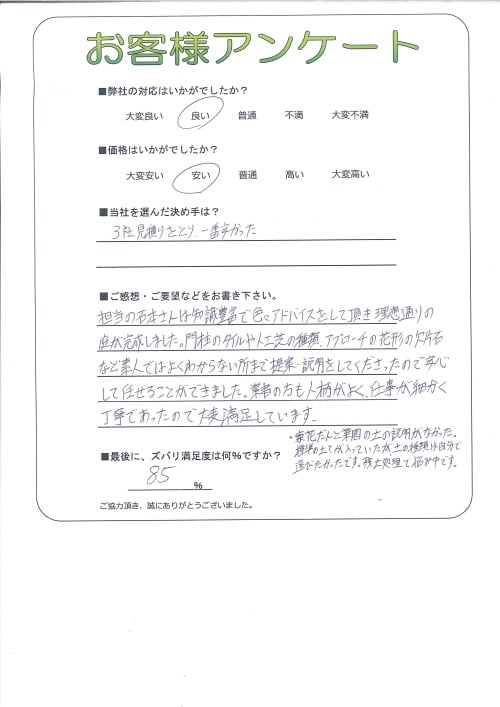 お客様アンケート
■弊社の対応はいかがでしたか？
大変良い 良い 普通 不満 大変不満
■価格はいかがでしたか？
大変安い 安い 普通 高い 大変高い
■当社を選んだ決め手は？
3社見積りをとり、一番安かった
■ご感想・ご要望などをお書き下さい。
担当の石本さんは知識豊富で色々アドバイスをして頂き理想通りの
庭が完成しました。門柱のタイルや人工芝の種類、アプローチの花形の欠片石
など素人ではよくわからない所まで提案・説明をしてくださったので安心
して任せることができました。業者の方も人柄がよく、仕事が細かく
丁寧であったので大変満足しています。
・家花だんと菜園の土の説明がなかった。
標準の土が入っていたが土の種類は自分で
選びたかったです。残土処理で悩み中です。
■最後に、ズバリ満足度は何%ですか？
85 %
ご協力頂き、誠にありがとうございました。